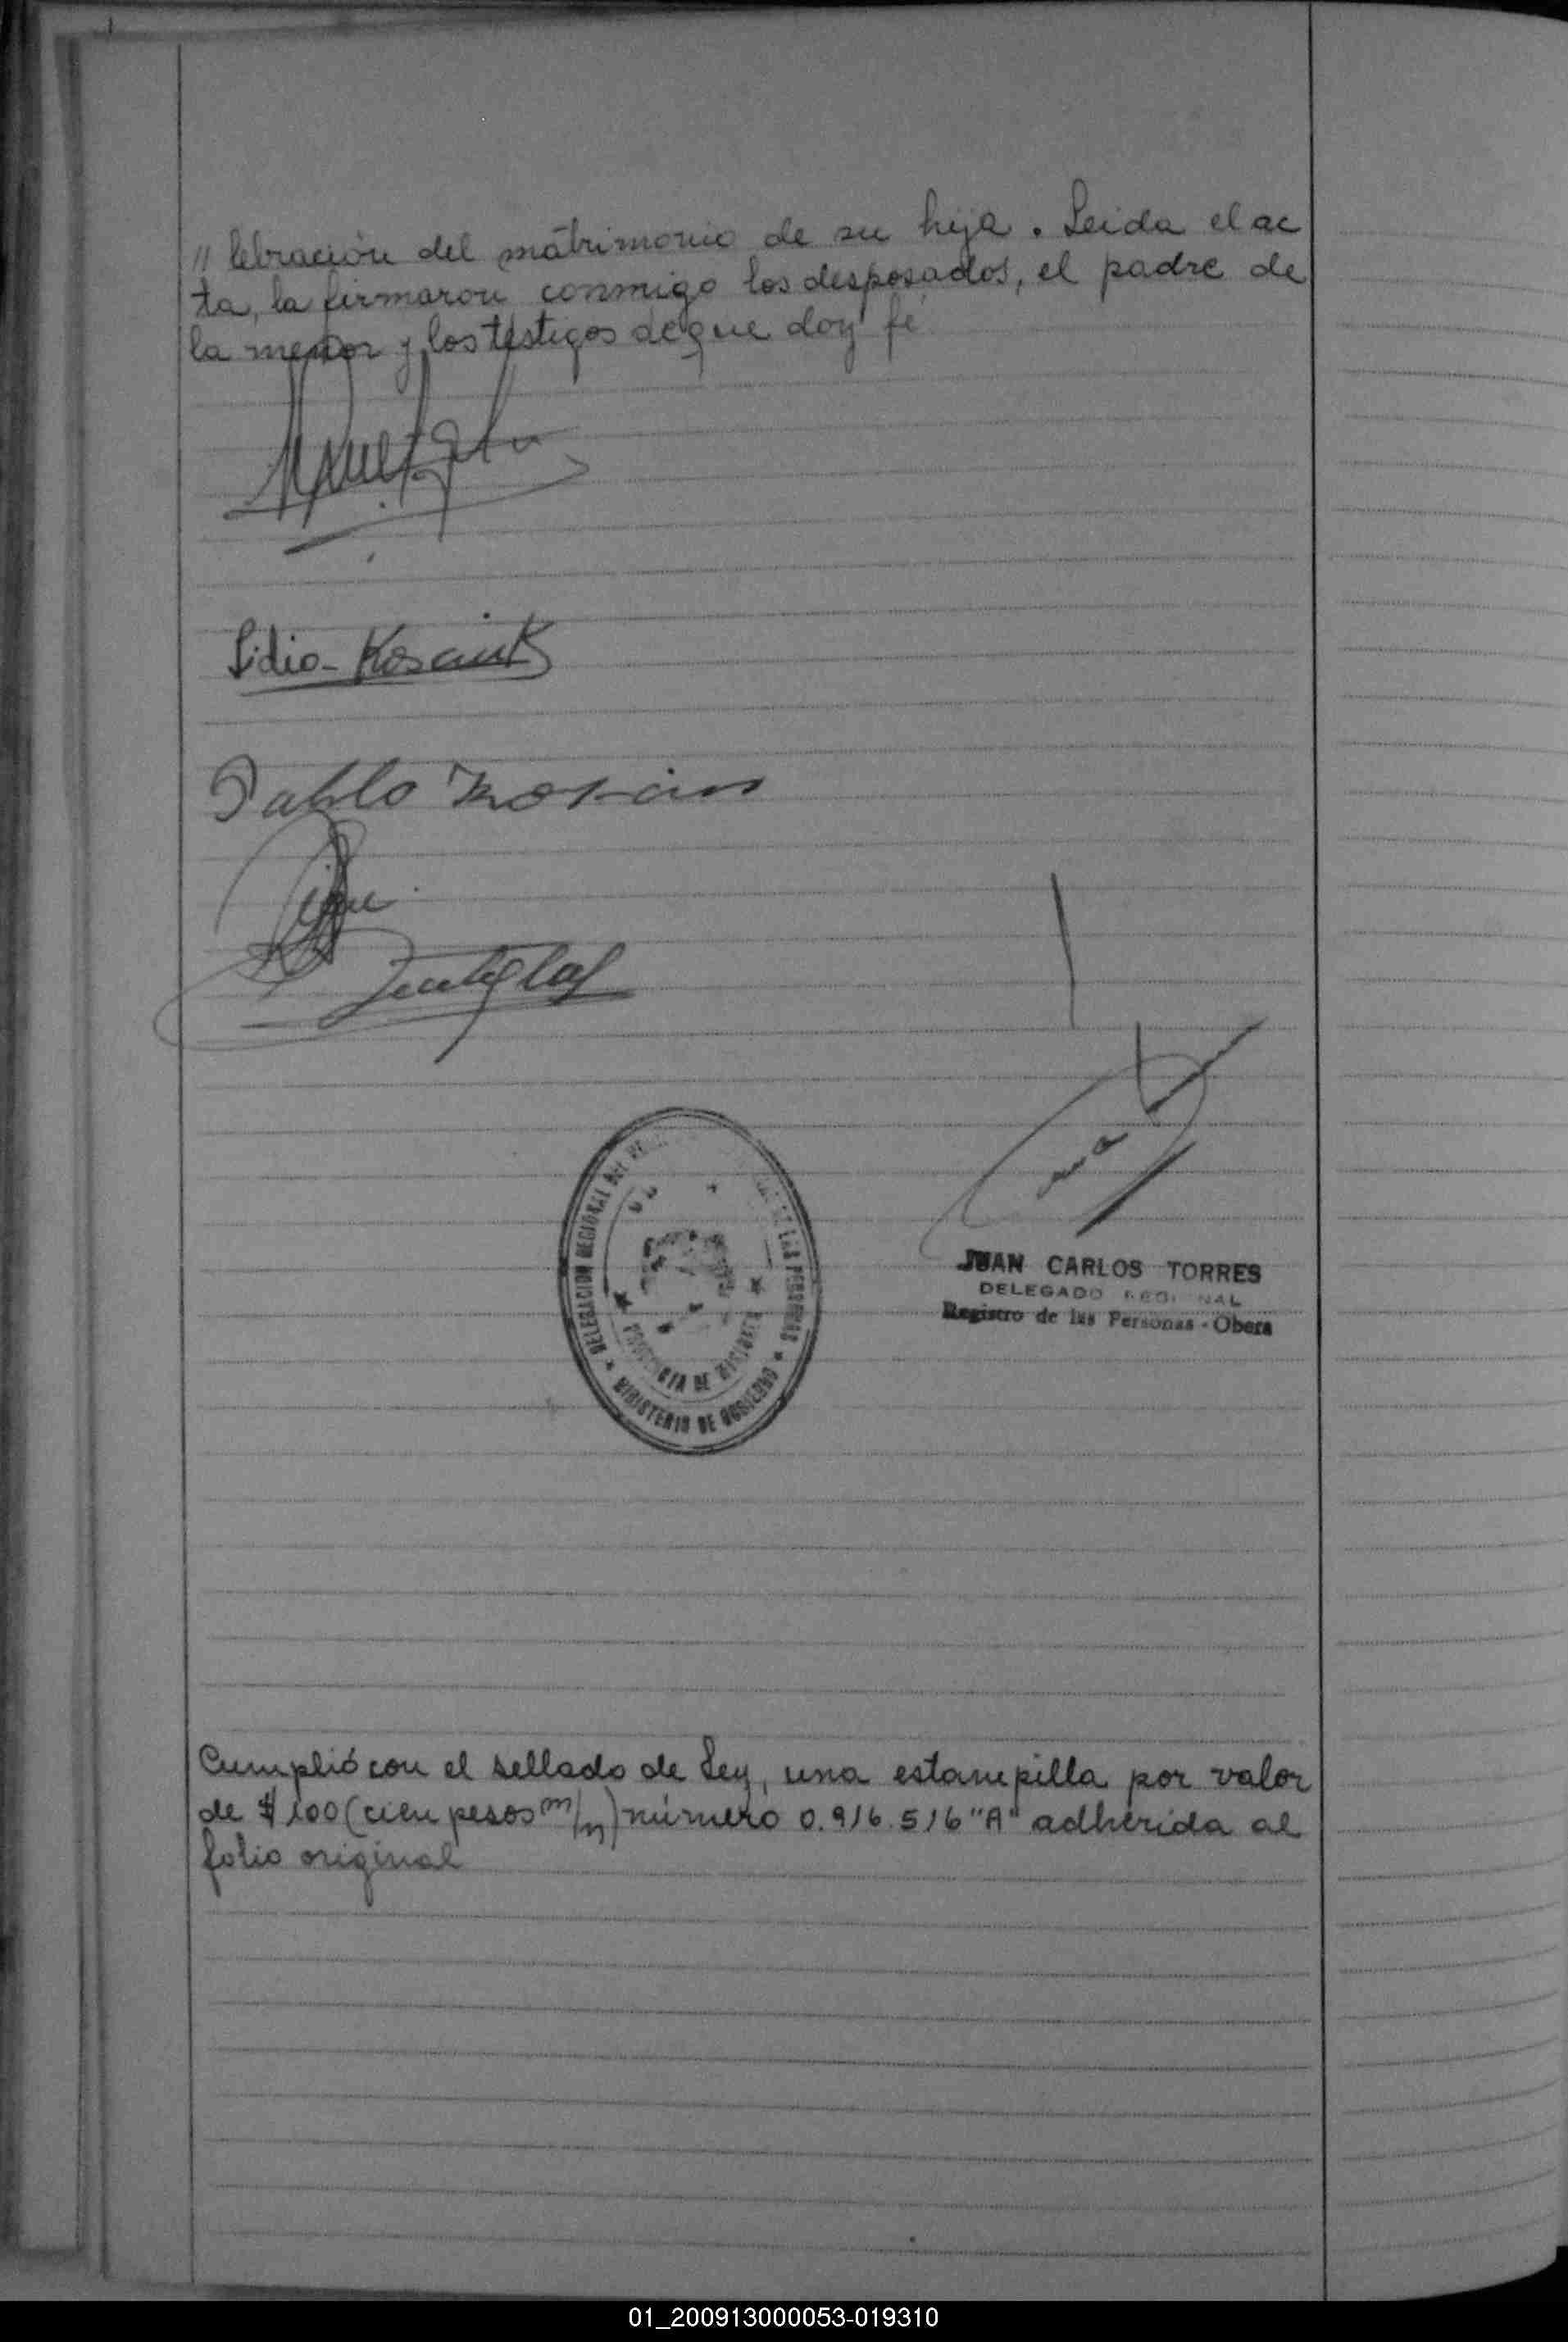 // lebración del matrimonio de su hija. Leida el ac
ta, la firmaron conmigo los desposados, el padre de
la menor y los testigos de que doy fé
Lidia - Kosciuk
Pablo
JUAN CARLOS TORRES
DELEGADO REGIONAL
Registro de las Personas - Obera
DELEGACION REGIONAL DEL DE LAS PERSONAS
PROVINCIA DE MISIONES
MINISTERIO DE GOBIERNO
Cumplió con el sellado de Ley, una estampilla por valor
de $ 100 (cien pesos m/n) número 0.916.516 "A" adherida al
folio original
01_200913000053-019310